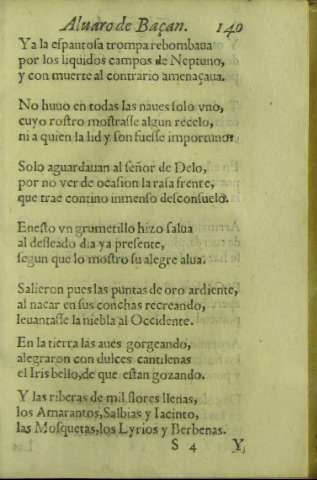 Aluaro de Baçan. 140
Ya la espantosa trompa rebombaua
por los liquidos campos de Neptuno,
y con muerte al contrario amenaçaua.
No huuo en todas las naues solo vno,
cuyo rostro mostrasse algun recelo,
ni a quien la lid y son fuesse importuno.
Solo aguardauan al señor de Delo,
por no ver de ocasion la rasa frente,
que trae contino inmenso desconsuelo.
Enesto vn grumetillo hizo salua
al desseado dia ya presente,
segun que lo mostro su alegre alua.
Salieron pues las puntas de oro ardiente,
al nacar en sus conchas recreando,
leuantasse la niebla al Occidente.
En la tierra las aues gorgeando,
alegraron con dulces cantilenas
el Iris bello, de que estan gozando.
Y las riberas de mil flores llenas,
los Amarantos, Salbias y Iacinto,
las Mosquetas, los Lyrios y Berbenas.
S 4 Y,